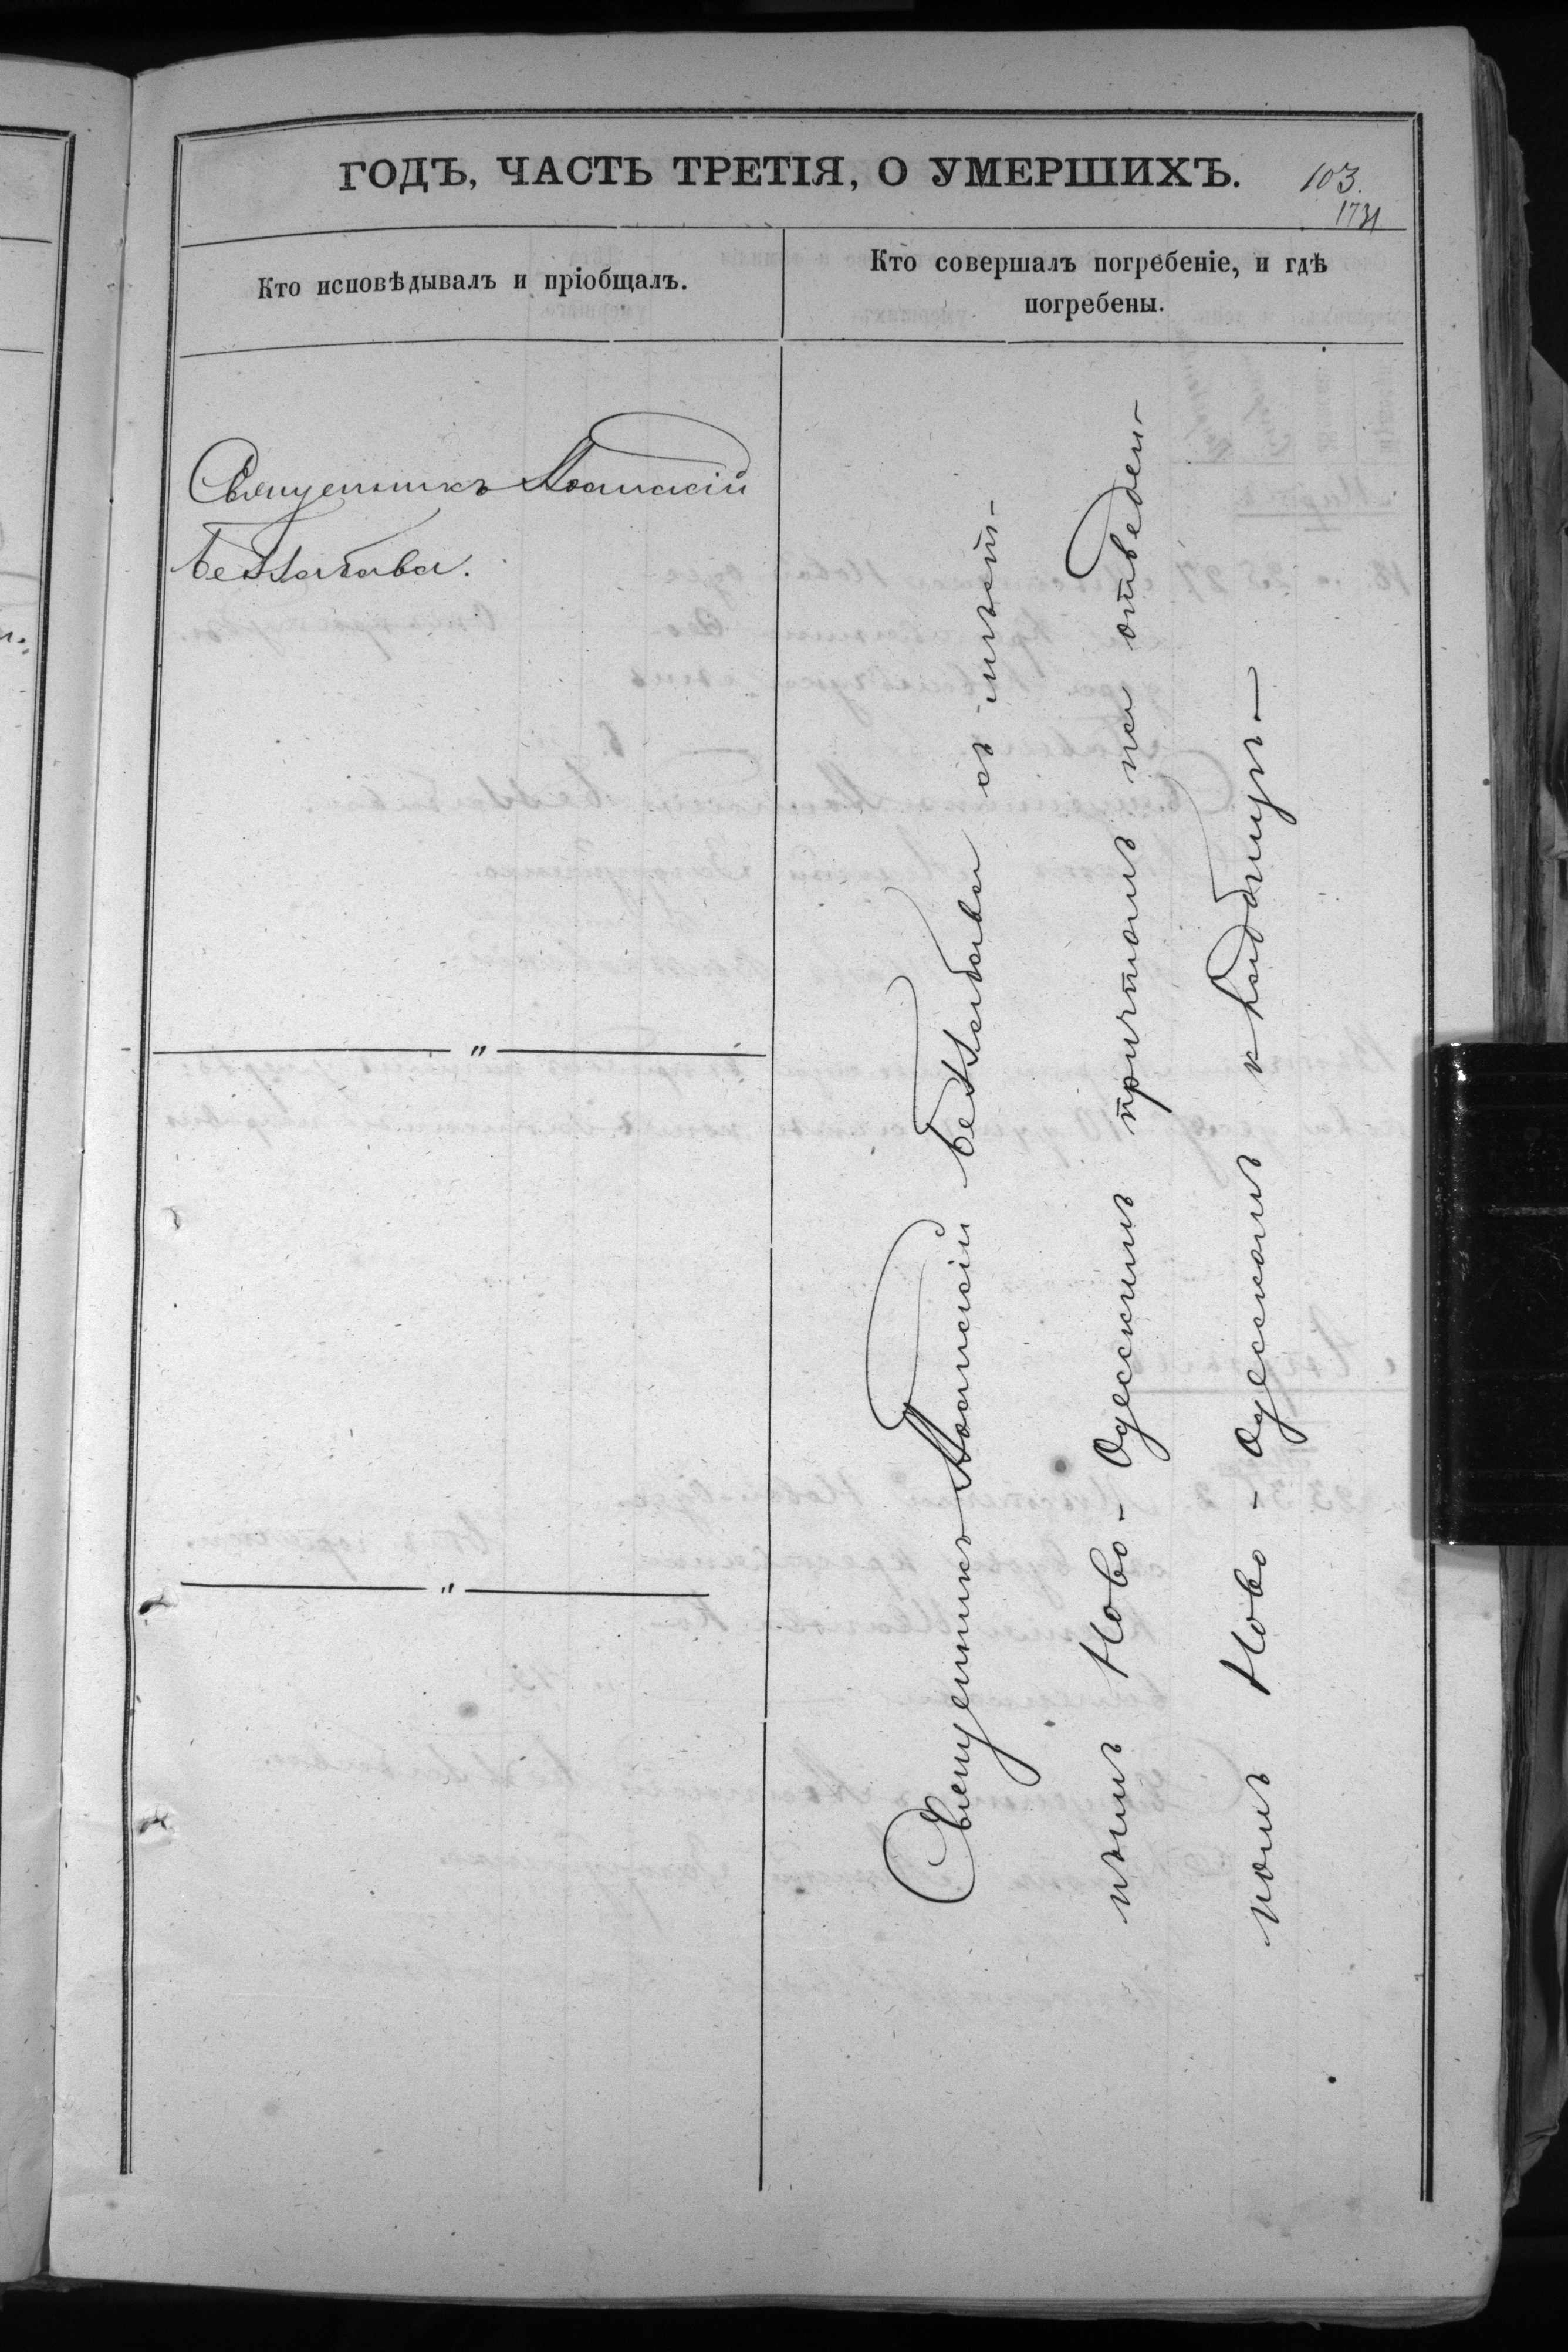 ГОДЪ, ЧАСТЬ ТРЕТІЯ, О УМЕРШИХЪ.
103.
Кто исповѣдывалъ и пріобщалъ.
Кто совершалъ погребеніе, и гдѣ
погребены.
Священникъ Аѳанасій
Беззабава.
"
"
Священникъ Аѳанасій Беззабава съ мѣст-
нымъ Ново-Одесскимъ причтомъ на отведен-
номъ Ново-Одесскомъ кладбищѣ.—